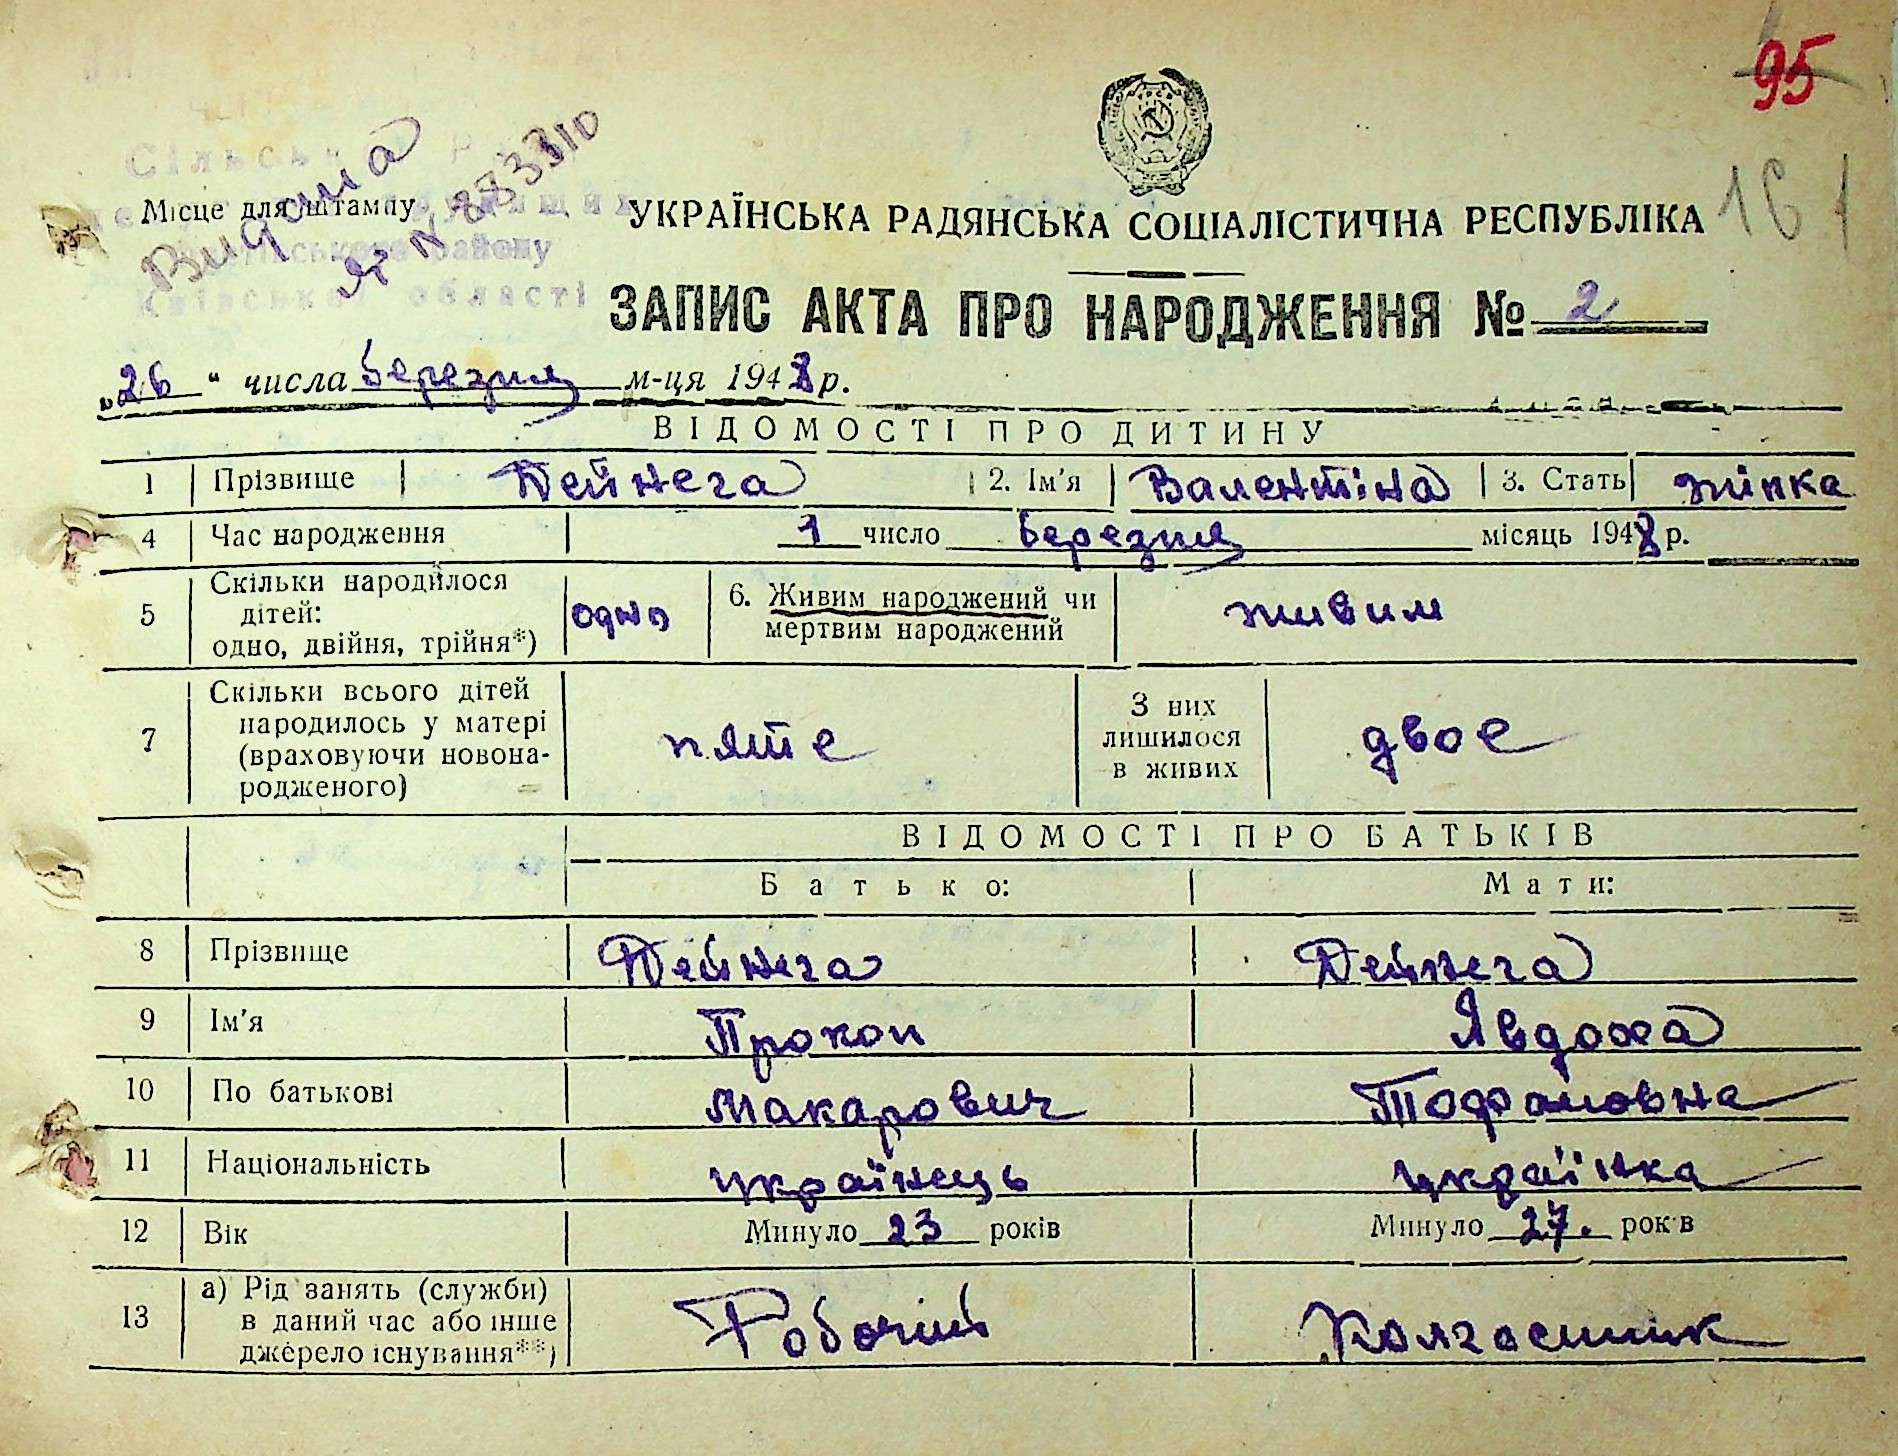 95
161
Сільсь
Місце для штампу
Видана
ЯТ № 883310
району
Київської області
УКРАЇНСЬКА РАДЯНСЬКА СОЦІАЛІСТИЧНА РЕСПУБЛІКА
ЗАПИС АКТА ПРО НАРОДЖЕННЯ № 2
„26“ числа березня м-ця 1948 р.
ВІДОМОСТІ ПРО ДИТИНУ
1 Прізвище Дейнега 2. Ім'я Валентіна 3. Стать жінка
4 Час народження 1 число березня місяць 1948 р.
5 Скільки народилося дітей: одно, двійня, трійня*) одно 6. Живим народжений чи мертвим народжений живим
7 Скільки всього дітей народилось у матері (враховуючи новонародженого) пяте З них лишилося в живих двое
ВІДОМОСТІ ПРО БАТЬКІВ
Батько: Мати:
8 Прізвище Дейнега Дейнега
9 Ім'я Прокоп Явдоха
10 По батькові Макарович Тофановна
11 Національність українець українка
12 Вік Минуло 23 років Минуло 27. років
13 а) Рід занять (служби) в даний час або інше джерело існування**) Робочий Колгоспник